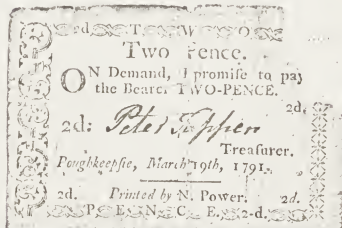 2d. T W O
Two Pence.
ON Demand, I promise to pay
the Bearer TWO-PENCE.
2d.
2d: Peter Tappen
Treasurer.
Poughkeepsie, March 19th, 1791.
2d. Printed by N. Power. 2d.
P E N C E. 2-d.